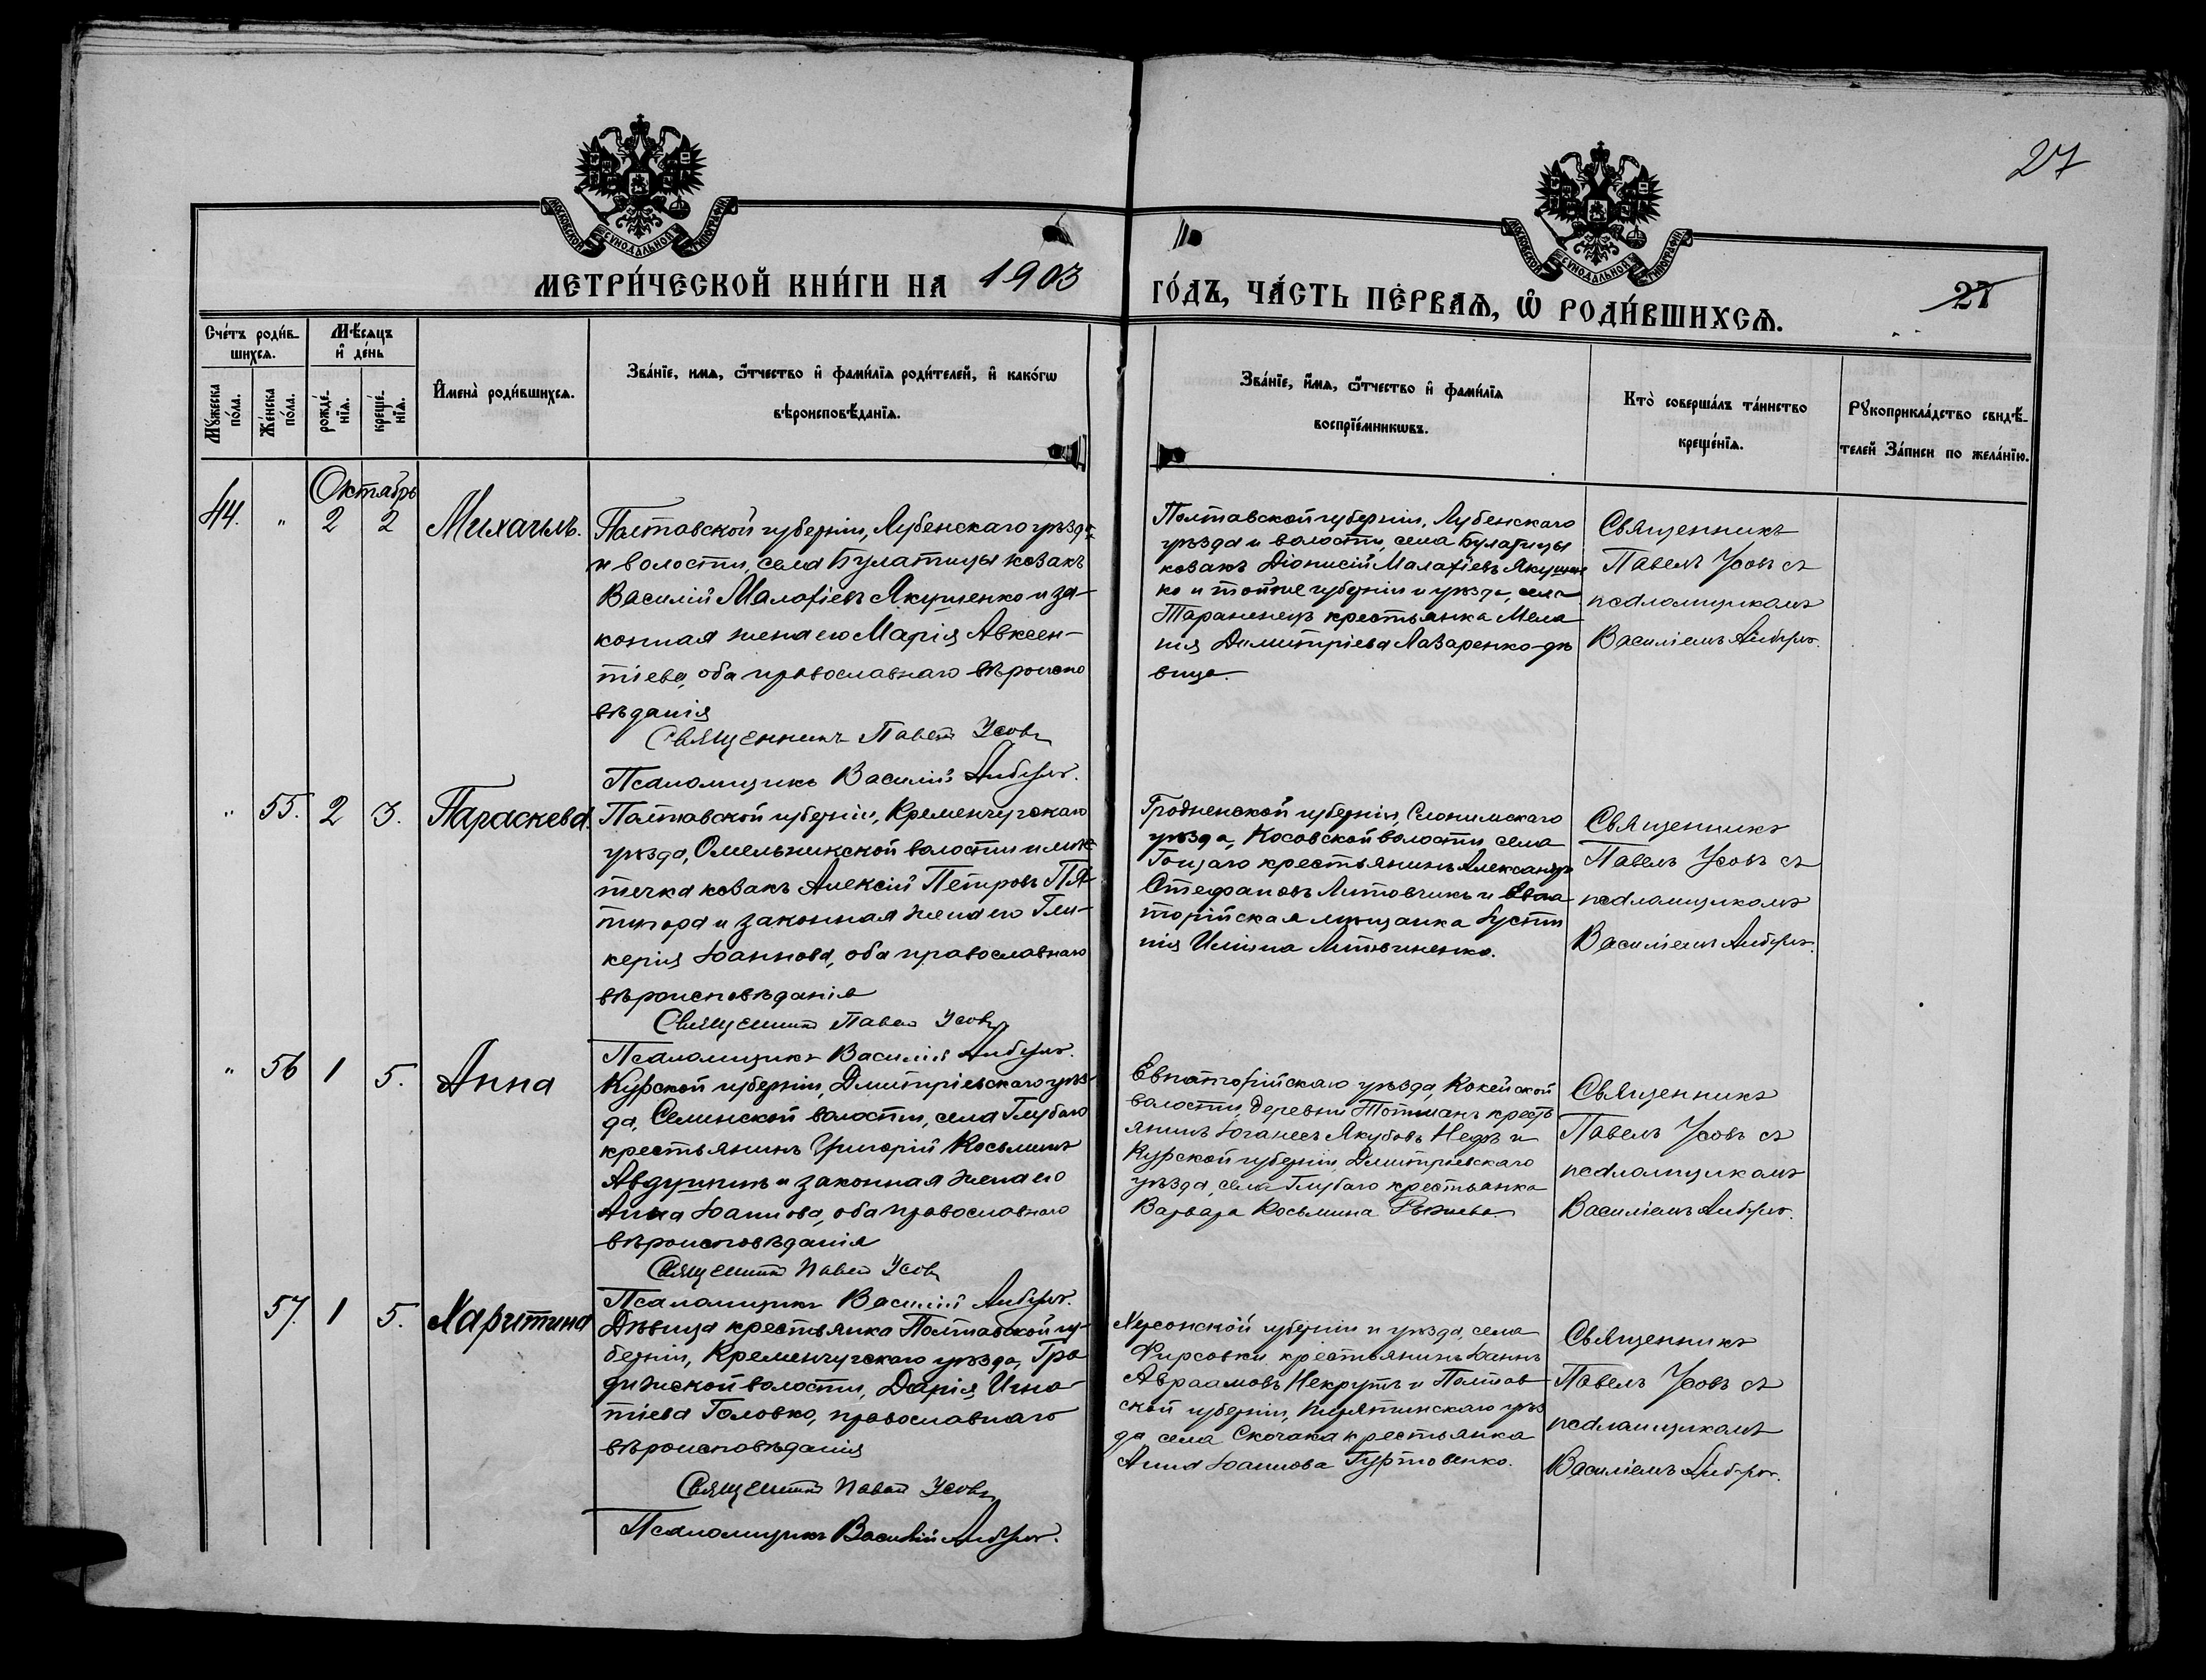 27
МОСКОВСКОЙ СѴНОДАЛЬНОЙ ТИПОГРАФІИ
МОСКОВСКОЙ СѴНОДАЛЬНОЙ ТИПОГРАФІИ
МЕТРИ́ЧЕСКОЙ КНИ́ГИ НА 1903 ГО́ДЪ, ЧА́СТЬ ПЕ́РВАѦ, Ѡ҆ РОДИ́ВШИХСѦ.
27
Сче́тъ роди́в-
шихсѧ.
Мѣ́сѧцъ
и҆ де́нь
Мꙋ́жеска
по́ла.
Же́нска
по́ла.
рожде́-
нїѧ.
креще́-
нїѧ.
И҆мена̀ роди́вшихсѧ.
Зва́нїе, имѧ, ѻ҆́тчество и҆ фами́лїѧ роди́телей, и҆ како́гѡ
вѣроисповѣ́данїѧ.
Зва́нїе, и҆́мѧ, ѻ҆́тчество и҆ фами́лїѧ
воспрїе́мникѡвъ.
Кто̀ соверша́лъ та́инство
креще́нїѧ.
Рꙋкоприкла́дство свидѣ́-
телей За́писи по жела́нїю.
Октябрь
44. " 2 2 Михаилъ.
Полтавской губерніи, Лубенскаго уѣзда
и волости, села Булатицы козакъ
Василій Малафіевъ Якушенко и за-
конная жена его Марія Авксен-
тіева, оба православнаго вѣроиспо
вѣданія
Священникъ Павелъ Усовъ
Псаломщикъ Василій
Полтавской губерніи, Лубенскаго
уѣзда и волости, села Булатицы
козакъ Діонисій Малафіевъ Якушен
ко и той же губерніи и уѣзда, села
крестьянка Мела
нія Димитріева Лазаренко-дѣ
вица.
Священникъ
Павелъ Усовъ съ
псаломщикомъ
Василіемъ
" 55. 2 3. Параскева.
Полтавской губерніи, Кременчугскаго
уѣзда, Омельникской волости и мѣс
течка козакъ Алексій Петровъ Пя-
тигора и законная жена его Гли-
керія Іоаннова, оба православнаго
вѣроисповѣданія
Священникъ Павелъ Усовъ
Псаломщикъ Василій
Гродненской губерніи, Слонимскаго
уѣзда, Косовской волости села
крестьянинъ Александръ
Стефановъ Литовчикъ и Евпа
торійская мѣщанка Іусти
нія
Священникъ
Павелъ Усовъ съ
псаломщикомъ
Василіемъ
" 56 1 5. Анна
Курской губерніи, Дмитріевскаго уѣз-
да, Селинской волости, села Глубаго
крестьянинъ Григорій Косьминъ
Авдушинъ и законная жена его
Анна Іоаннова, оба православнаго
вѣроисповѣданія
Священникъ Павелъ Усовъ
Псаломщикъ Василій
Евпаторійскаго уѣзда,
волости, деревни кресть
янинъ Іоганесъ Якубовъ Нефъ и
Курской губерніи, Дмитріевскаго
уѣзда, села Глубаго крестьянка
Варвара Косьмина
Священникъ
Павелъ Усовъ съ
псаломщикомъ
Василіемъ
57. 1 5. Харитина
Дѣвица крестьянка Полтавской гу-
берніи, Кременчугскаго уѣзда, Гра
дижской волости, Дарія Игна-
тіева Головко, православнаго
вѣроисповѣданія
Священникъ Павелъ Усовъ
Псаломщикъ Василій
Херсонской губерніи и уѣзда, села
Фирсовки крестьянинъ Іоаннъ
Авраамовъ Некрутъ и Полтав
ской губерніи, Пирятинскаго уѣз
да села крестьянка
Анна Іоаннова Гуртовенко.
Священникъ
Павелъ Усовъ съ
псаломщикомъ
Василіемъ